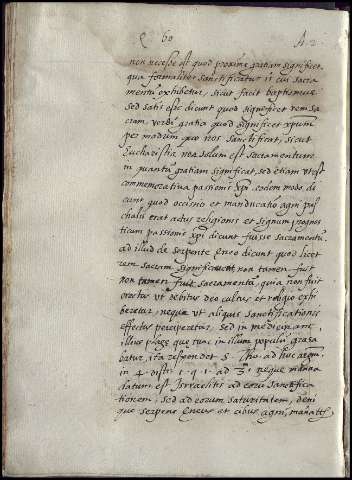 Q 60 A. 2.
non necesse est quod proxime gratiam significet,
qua formaliter sanctificatur is cui sacra
mentū exhibetur, sicut facit baptismus
sed satis esse dicunt quod significet rem sa
cram, verbi gratia quod significet xpum
per modum quo nos sanctificat, sicut
Eucharistia non solum est sacramentum
in quantū gratiam significat, sed etiam ut est
commemorativa passionis xpi. eodem modo di
cunt quod occisio et manducatio agni pas
chalis erat actus religionis et signum prognos
ticum passionis xpi dicunt fuisse sacramentū.
ad illud de serpente eneo dicunt quod licet
rem sacram significaret, non tamen fuit
non tamen fuit sacramentū, quia non fuit
ut debitus deo cultus et religio exhi
beretur, neque ut aliquis sanctificationis
effectus perciperetur, sed in medicinam
illius plage que tunc in illum populū grasa
batur, ita respondet S. Tho. ad hoc argm.
in 4 distin. 1. q. 1. ad 3. neque manna
datum est Israelitis ad eorū sanctifica
tionem, sed ad eorum saturitatem, deni
que serpens eneus et cibus agni,